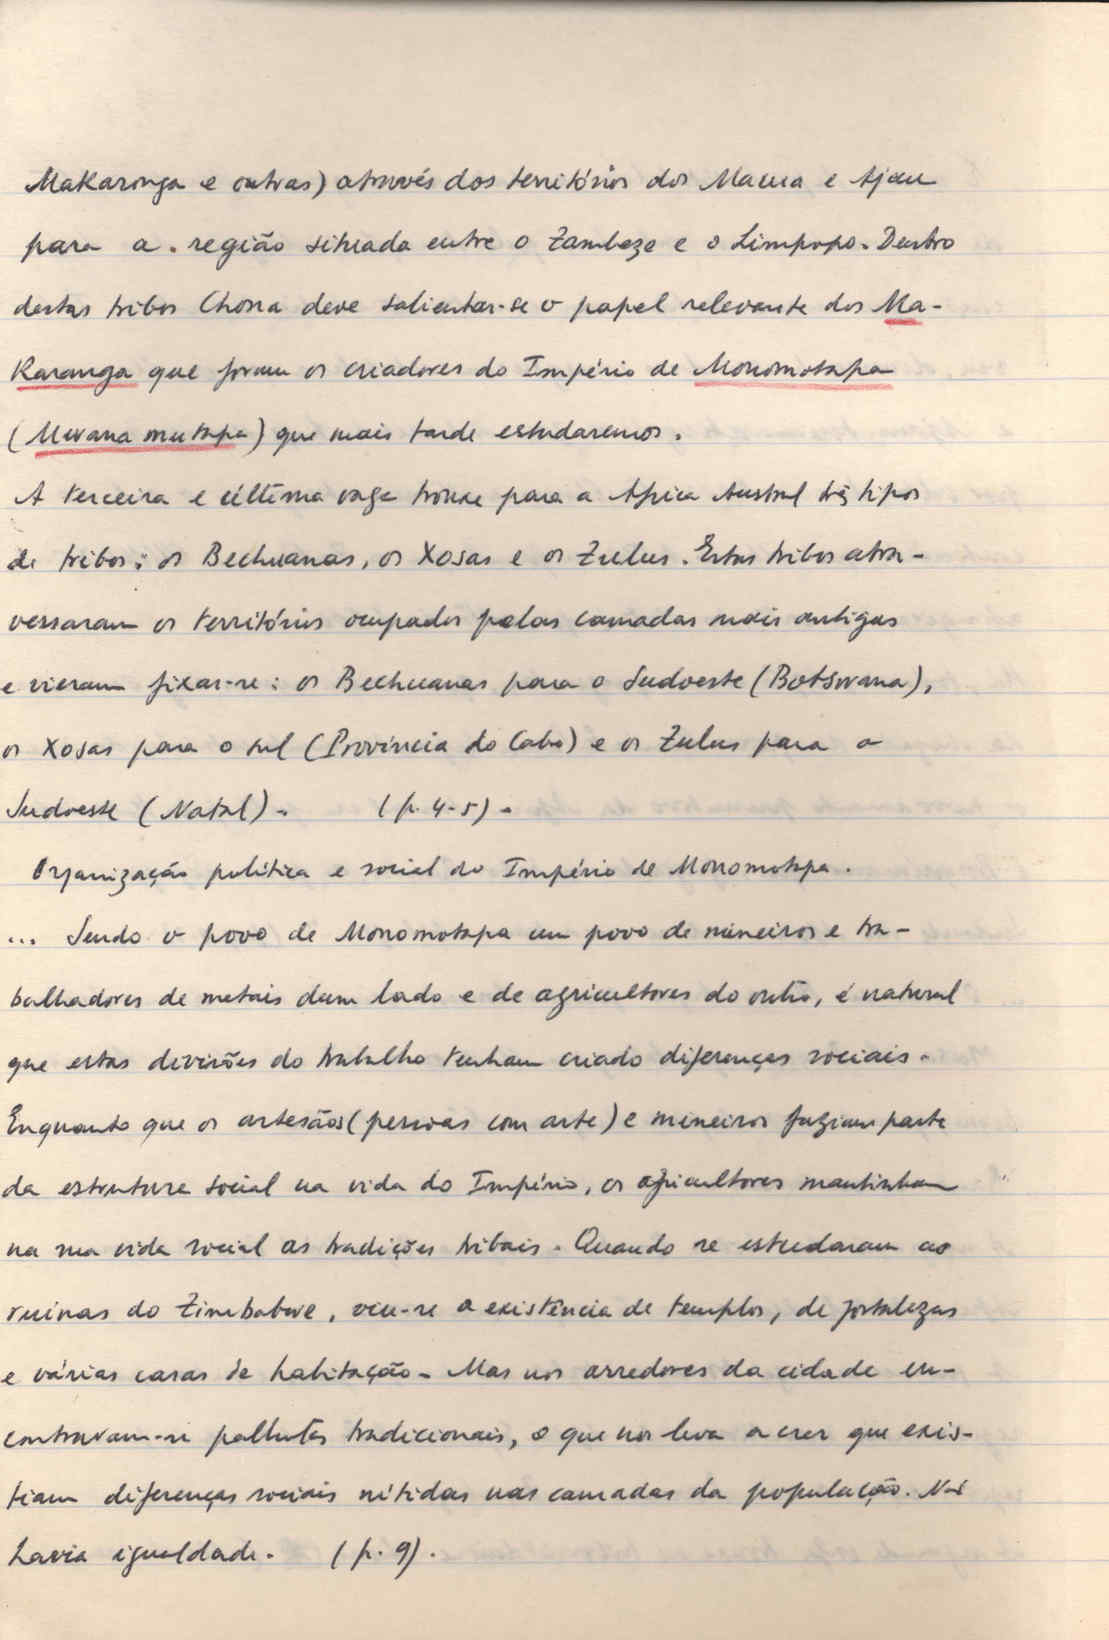 Makaronga e outras) através dos territórios dos Macua e Ajau
para a região situada entre o Zambeze e o Limpopo. Dentro
destas tribos Chona deve salientar-se o papel relevante dos Ma-
Karanga que foram os criadores do Império de Monomotapa
(Mwana mutapa) que mais tarde estudaremos.
A terceira e última vaga trouxe para a Africa Austral três tipos
de tribos: os Bechuanas, os Xosas e os Zulus. Estas tribos atra-
vessaram os territórios ocupados pelas camadas mais antigas
e vieram fixar-se: os Bechuanas para o Sudoeste (Botswana),
os Xosas para o sul (Província do Cabo) e os Zulus para o
Sudoeste (Natal). (p. 4-5).
Organização política e social do Império de Monomotapa.
... Sendo o povo de Monomotapa um povo de mineiros e tra-
balhadores de metais dum lado e de agricultores do outro, é natural
que estas divisões do trabalho tenham criado diferenças sociais.
Enquanto que os artesãos (pessoas com arte) e mineiros faziam parte
da estrutura social na vida do Império, os agricultores mantinham
na sua vida social as tradições tribais. Quando se estudaram as
ruinas do Zimbabwe, viu-se a existência de templos, de fortalezas
e várias casas de habitação. Mas nos arredores da cidade en-
contravam-se palhotas tradicionais, o que nos leva a crer que exis-
tiam diferenças sociais nítidas nas camadas da população. Não
havia igualdade. (p. 9).